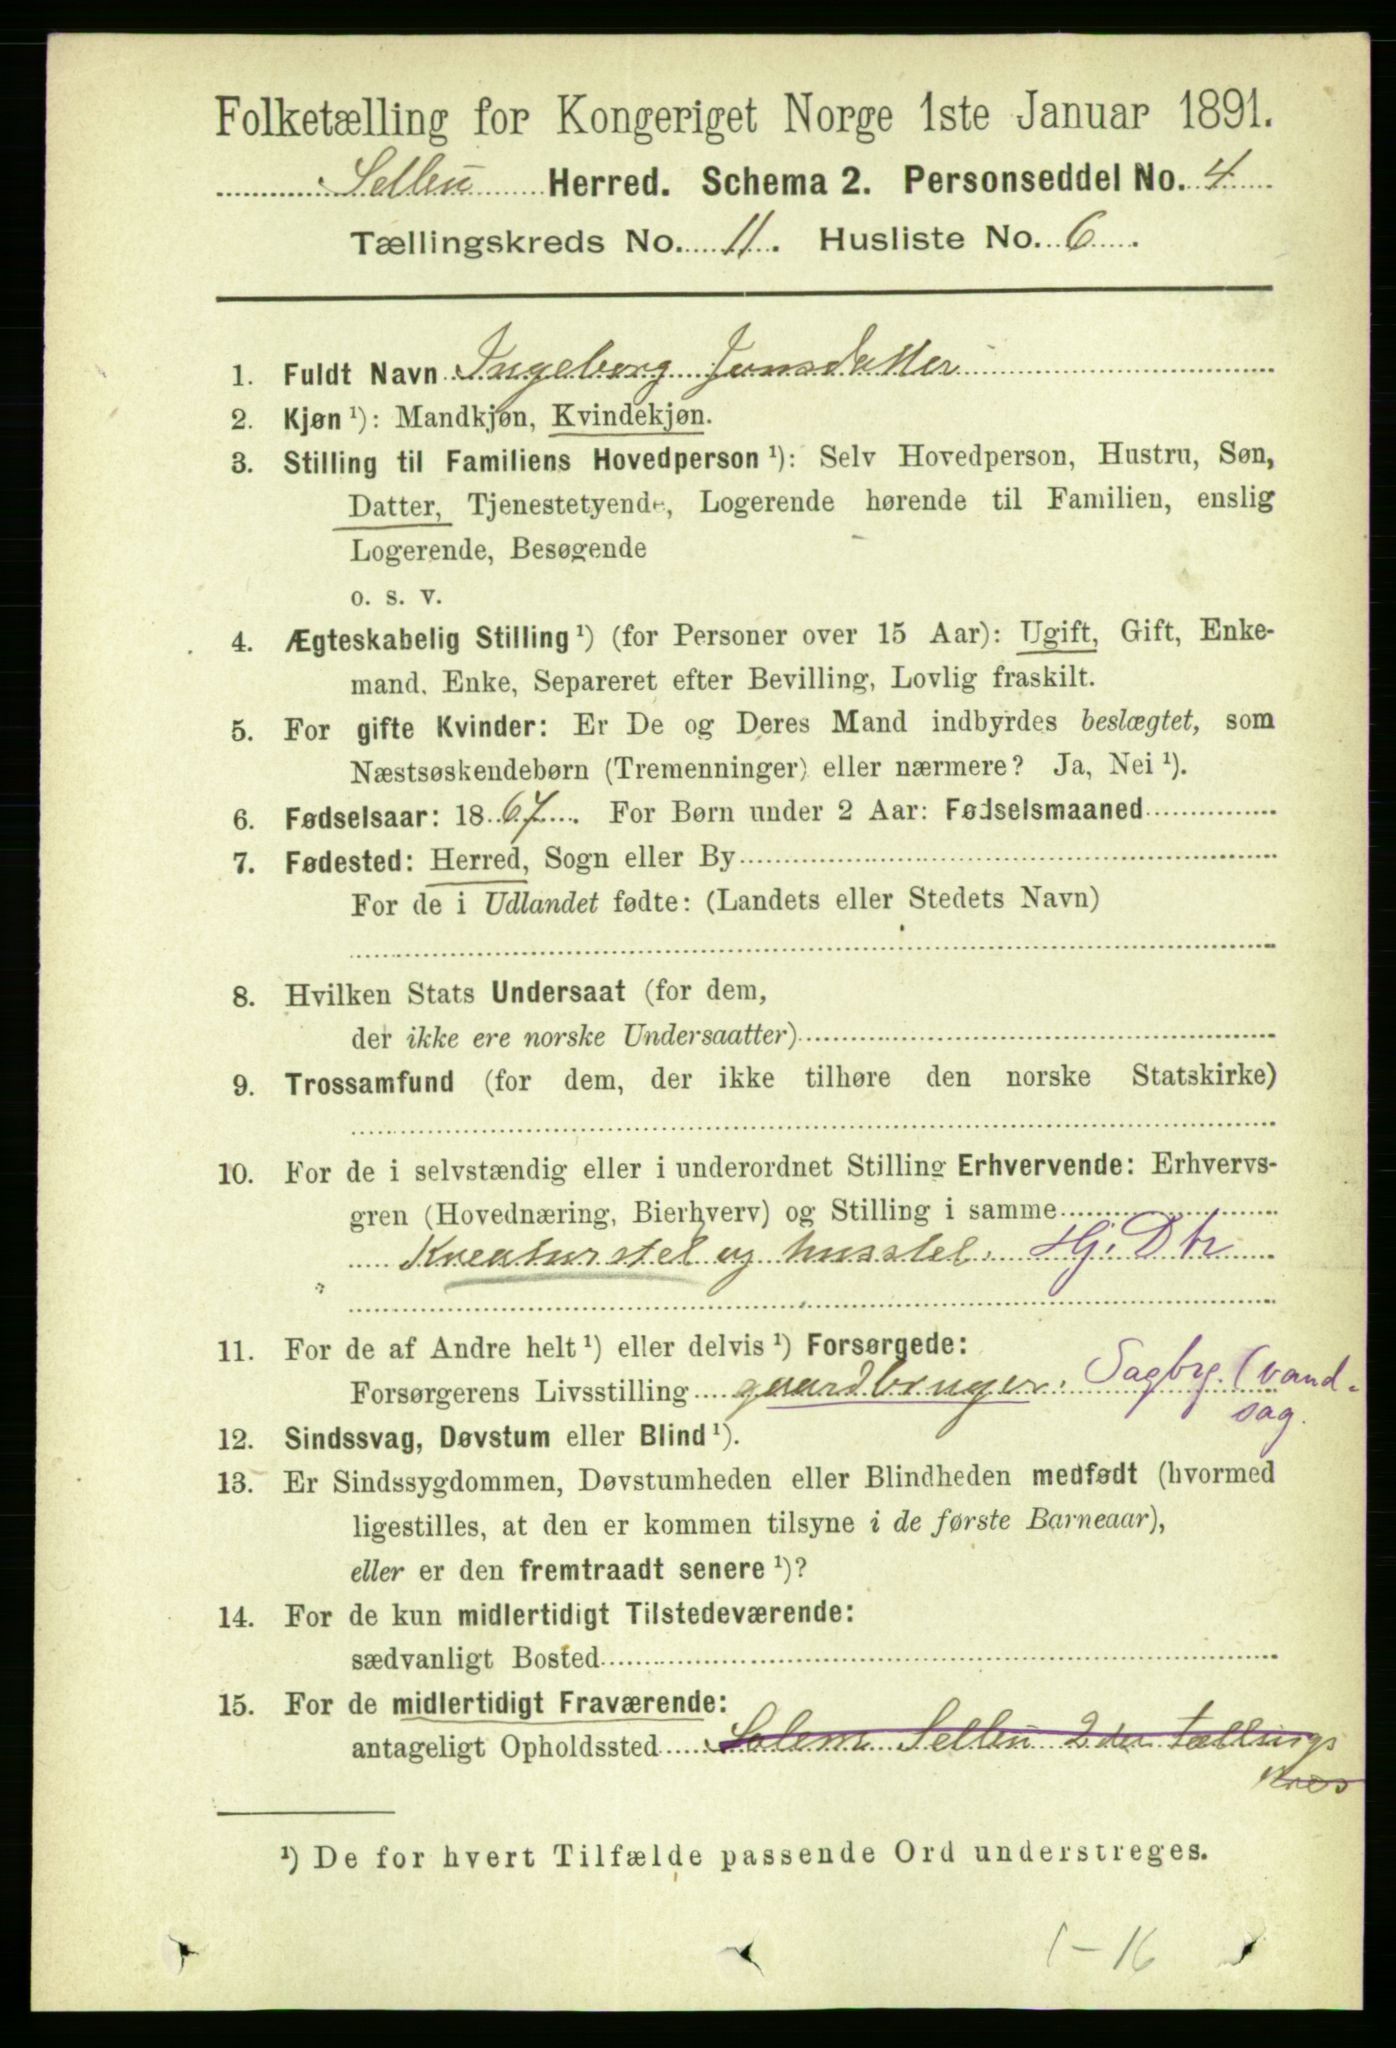 Folketælling for Kongeriget Norge 1ste Januar 1891.
Selbu Herred. Schema 2. Personseddel No. 4
Tællingskreds No. 11. Husliste No. 6.
1. Fuldt Navn Ingeborg Jonsdatter
2. Kjøn ¹): Mandkjøn, Kvindekjøn.
3. Stilling til Familiens Hovedperson ¹): Selv Hovedperson, Hustru, Søn,
Datter, Tjenestetyende, Logerende hørende til Familien, enslig
Logerende, Besøgende
o. s. v.
4. Ægteskabelig Stilling ¹) (for Personer over 15 Aar): Ugift, Gift, Enke-
mand, Enke, Separeret efter Bevilling, Lovlig fraskilt.
5. For gifte Kvinder: Er De og Deres Mand indbyrdes beslægtet, som
Næstsøskendebørn (Tremenninger) eller nærmere? Ja, Nei ¹).
6. Fødselsaar: 1867. For Børn under 2 Aar: Fødselsmaaned
7. Fødested: Herred, Sogn eller By
For de i Udlandet fødte: (Landets eller Stedets Navn)
8. Hvilken Stats Undersaat (for dem,
der ikke ere norske Undersaatter)
9. Trossamfund (for dem, der ikke tilhøre den norske Statskirke)
10. For de i selvstændig eller i underordnet Stilling Erhvervende: Erhvervs-
gren (Hovednæring, Bierhverv) og Stilling i samme
Kreaturstel og husstel. Hj. Dtr
11. For de af Andre helt ¹) eller delvis ¹) Forsørgede:
Forsørgerens Livsstilling gaardbruger. Sagbrg. (vand-
sag.
12. Sindssvag, Døvstum eller Blind ¹).
13. Er Sindssygdommen, Døvstumheden eller Blindheden medfødt (hvormed
ligestilles, at den er kommen tilsyne i de første Barneaar),
eller er den fremtraadt senere ¹)?
14. For de kun midlertidigt Tilstedeværende:
sædvanligt Bosted
15. For de midlertidigt Fraværende:
antageligt Opholdssted Solem Selbu 2den tællings
kres
¹) De for hvert Tilfælde passende Ord understreges.
1-16